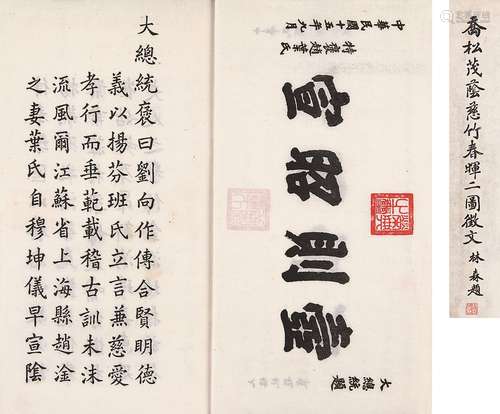 喬松茂蔭慈竹春暉二圖徵文 林森題
大總統題
壼則昭宣
特褒趙葉氏
中華民國十五年九月
大總統褒曰劉向作傳合賢明德
義以揚芬班氏立言兼慈愛
孝行而垂範載稽古訓未沫
流風爾江蘇省上海縣趙淦
之妻葉氏自穆坤儀早宣陰